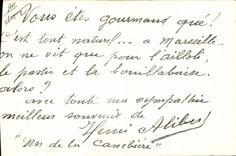 Vous êtes gourmand que!
C'est tout naturel... a Marseille
on ne vit que pour l'aïlloli,
le pastis et la bouillabaisse.
alors?
avec toute ma sympathie
meilleur souvenir de
Henri Alibert
"Un de la Canebière"